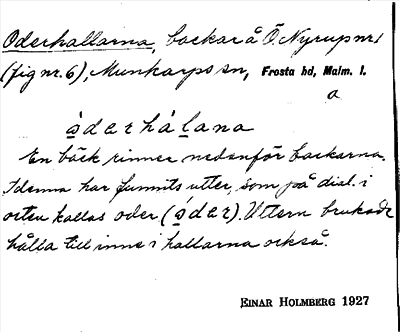 Oderhallarna, backar å Ö. Nyrup nr 1
(fig nr. 6), Munkarps sn, Frosta hd, Malm. l.
a
ódərhálana
En bäck rinner nedanför backarna.
I denna har funnits utter, som på dial. i
orten kallas oder (ódər). Uttern brukade
hålla till inne i hallarna också.
EINAR HOLMBERG 1927